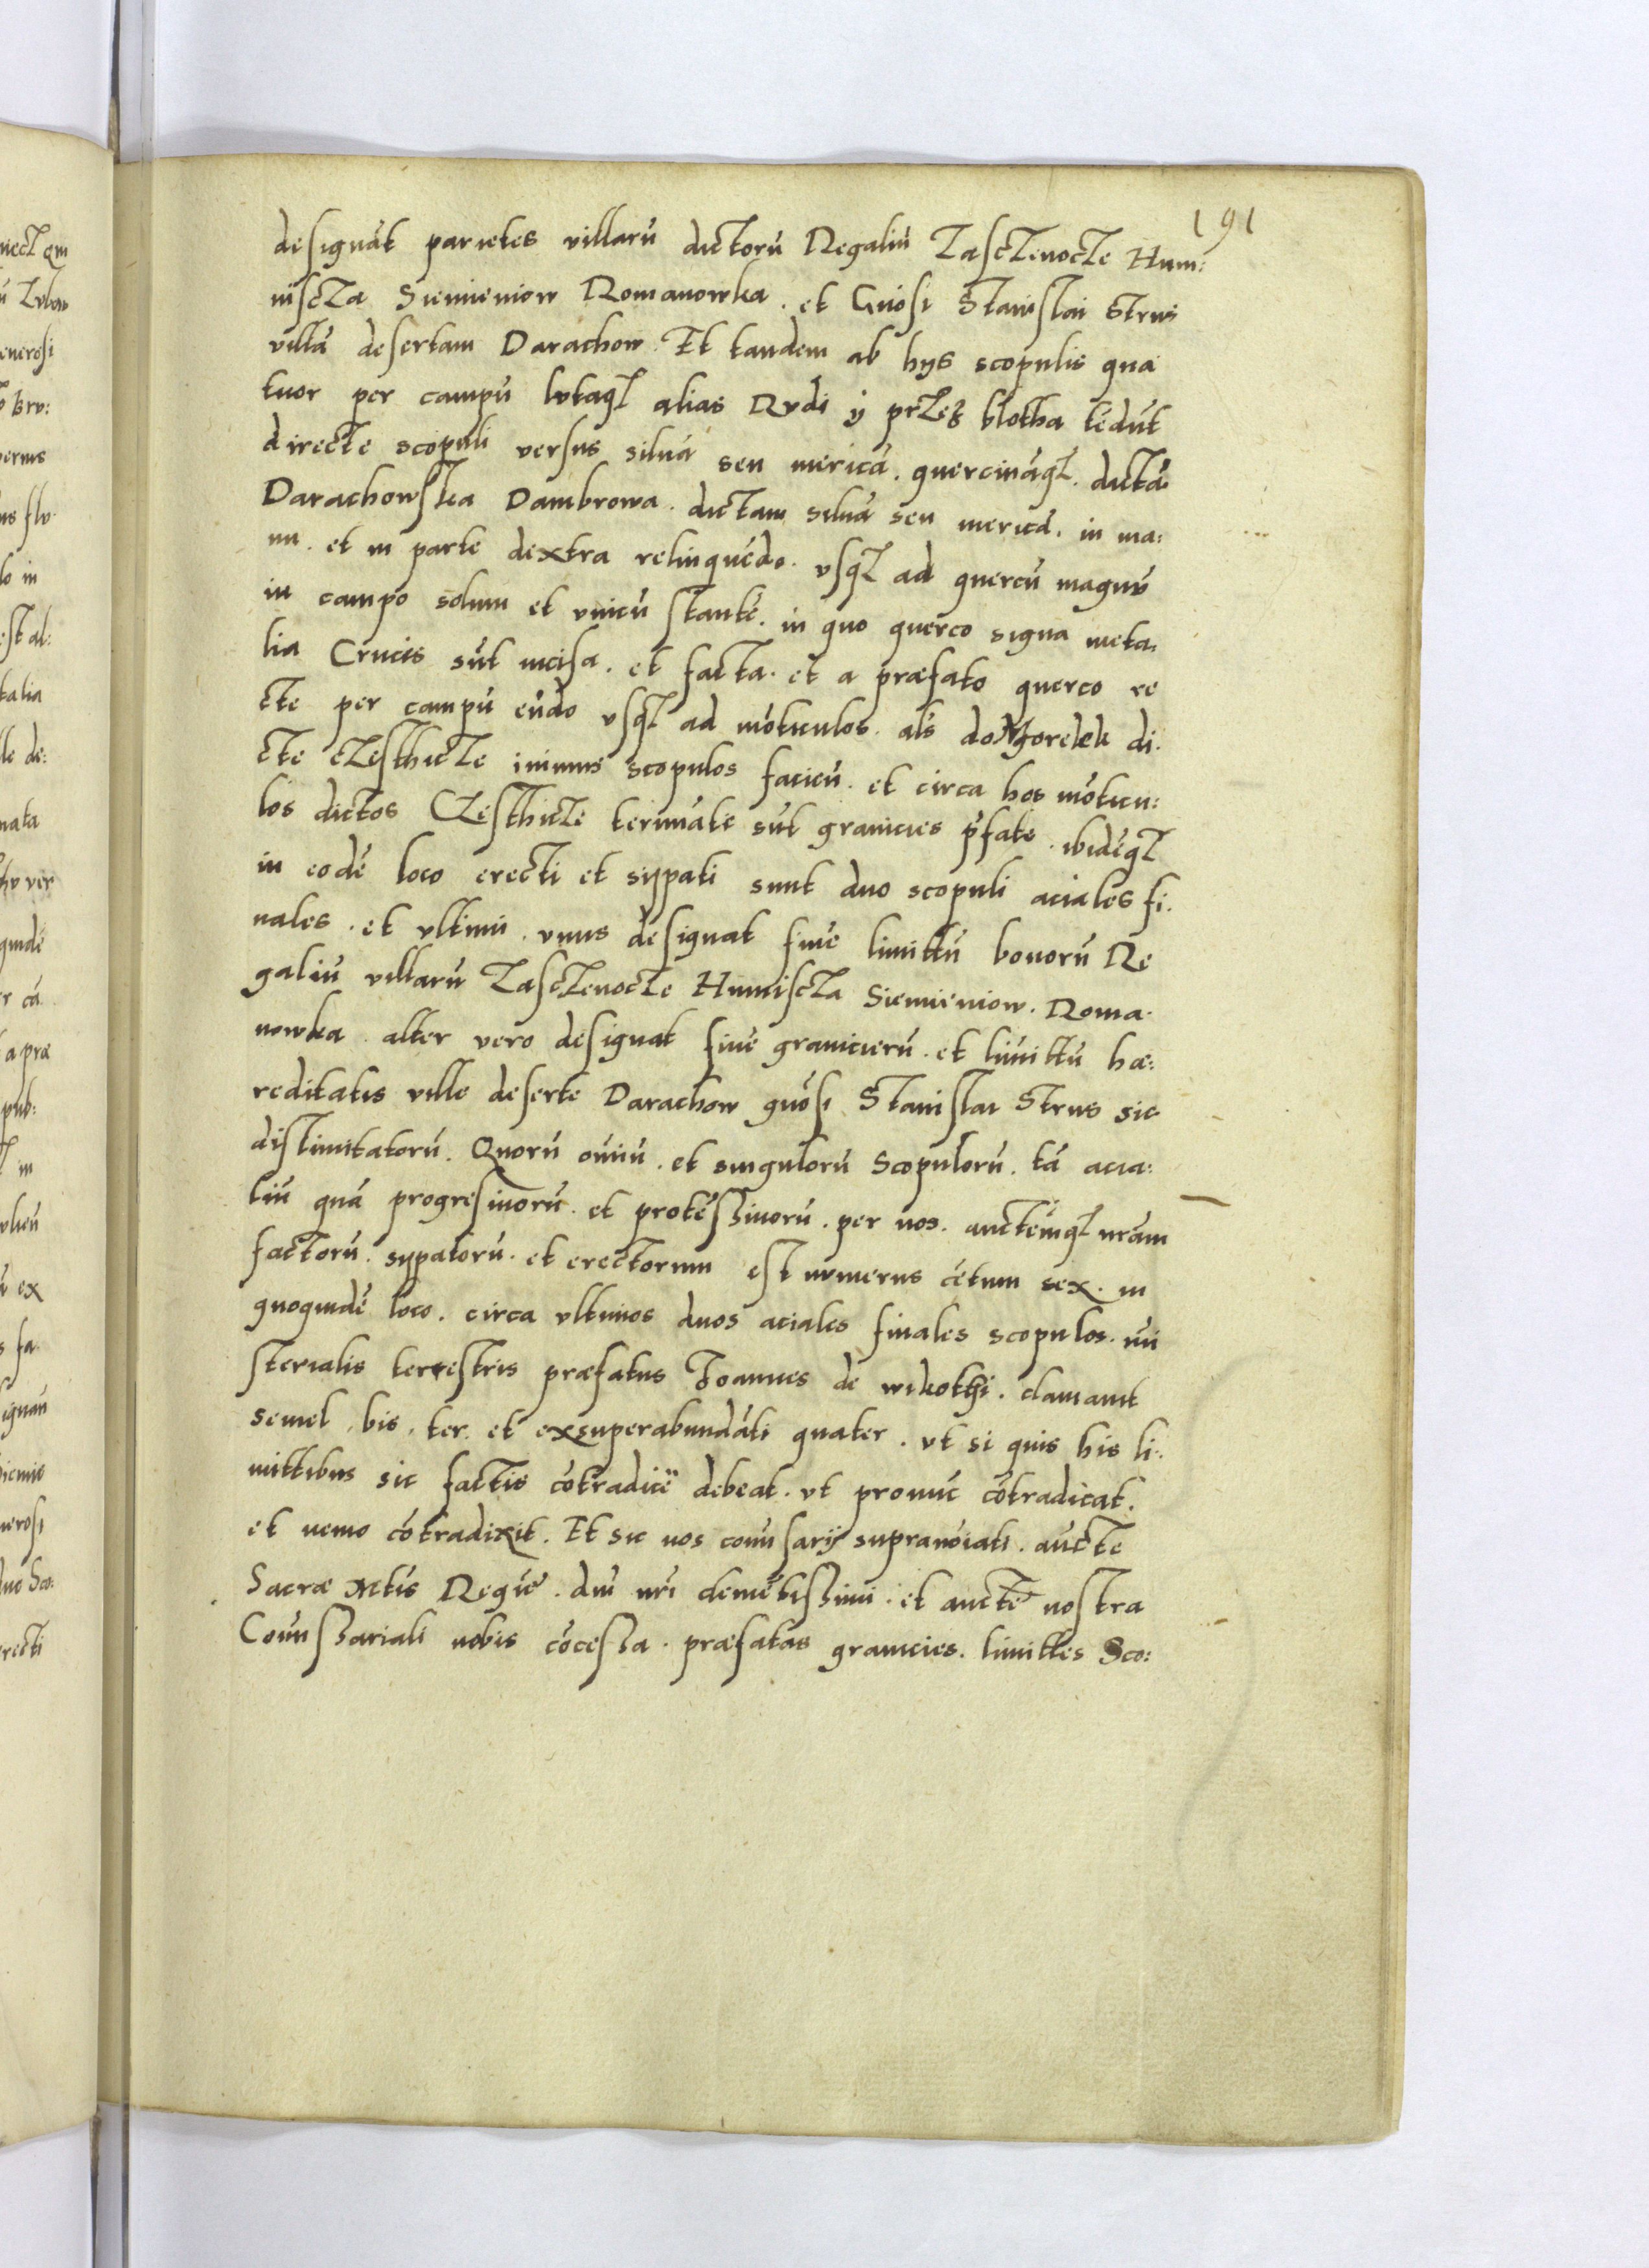 191
designāt parietes villarū dictorū Regaliū Zasczenocze Hum:
niscza Siemieniow Romanowka. et Gnōsi Stanislai Strus
villā desertam Darachow. Et tandem ab hijs scopulis qua
tuor per campū lutaqȝ alias Rudi ÿ przez blotha tēdūt
directe scopuli versus siluā seu mericā. quercināqȝ. dictā
Darachowska Dambrowa. dictam siluā seu mericā. in ma:
nu. et in parte dextra relinquēdo. vsqȝ ad quercū magnū
in campo solum et vnicū stantē. in quo querco signa meta.
lia Crucis sūt incisa. et facta. et a præfato querco re
cte per campū eūdo vsqȝ ad mōticulos. als do Mogorelek di.
cte czesthicze scopulos facieū. et circa hos mōticu:
los dictos Czesthicze termināte sūt granicies p̄fate. ibidēqȝ
in eodē loco erecti et sypati sunt duo scopuli aciales fi.
nales. et vltimi. vnus designat finē limittū bonorū Re
galiū villarū Zasczenocze Humiscza Siemieniow. Roma.
nowka. alter vero designat finē granicierū. et limittū hæ:
reditatis ville deserte Darachow gnōsi Stanislai Strus sic
distimitatorū. Quorū oīuiū. et singulorū Scopulorū. tā acia:
liū quā progresiuorū. et protēssiuorū. per nos. aucteīqȝ nrām
factorū. sypatorū. et erectorum est numerus cētum sex. in
quoquidē loco. circa vltimos duos aciales finales scopulos. mi
sterialis terrestris præfatus Joannes de wikothi. clamauit
semel. bis. ter. et exsuperabundāti quater. vt si quis his li.
mittibus sic factis cōtradicē debeat. vt pronūc cōtradicat.
et nemo cōtradixit. Et sic nos comīsarij supranoīati. aūcte
Sacræ Mtis Regiē. dni nrī clemētissimi. et auctē nostra
Comīssariali nobis cōcessa. præfatas granicies. limittes Sco: